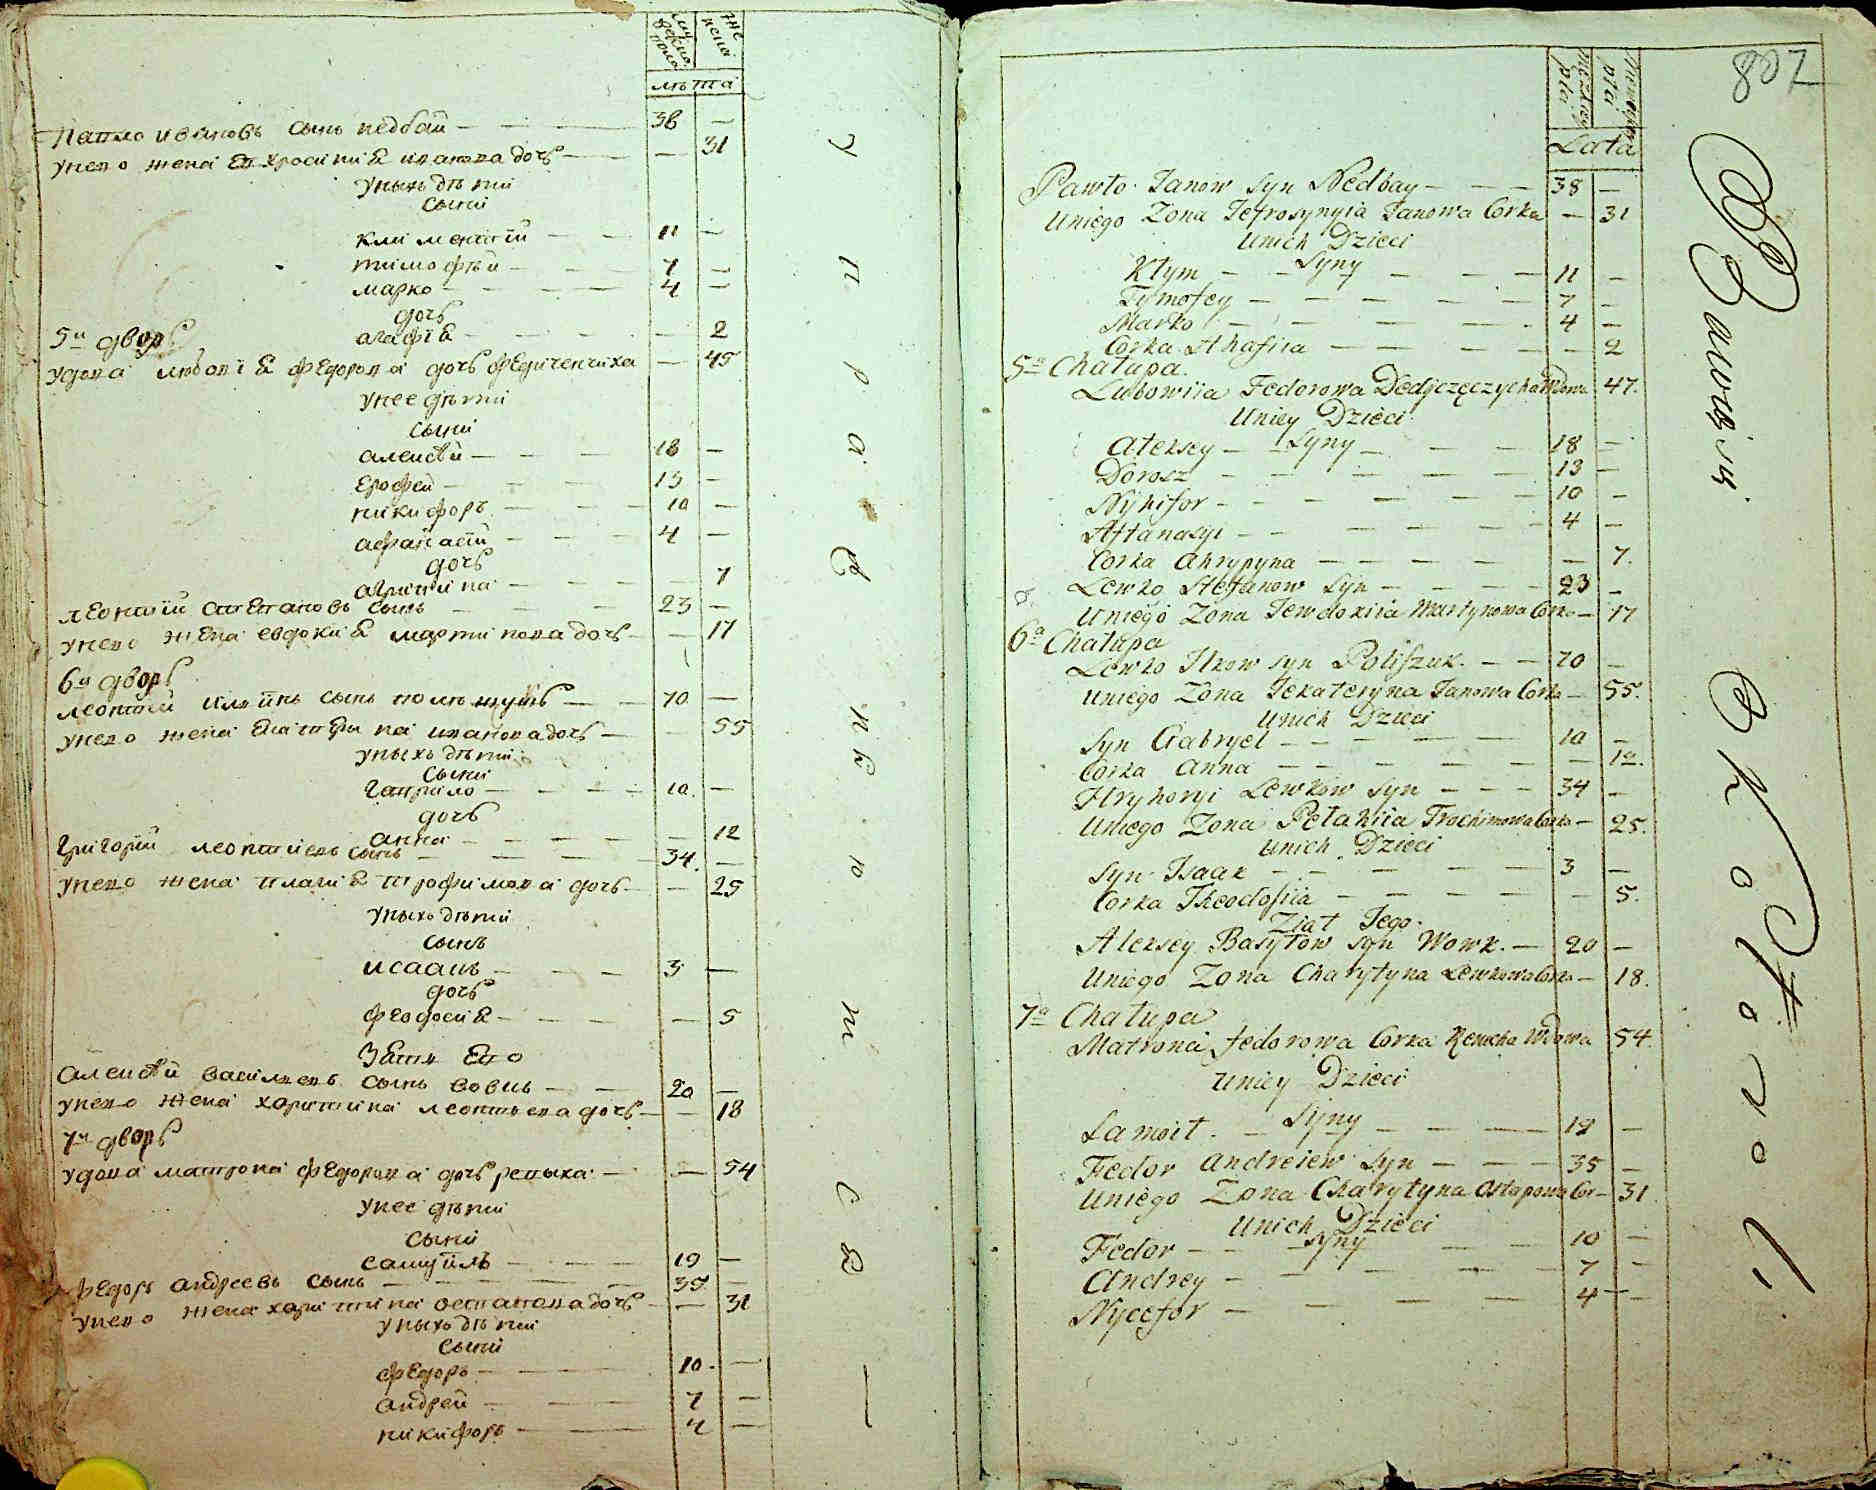 мужеска пола
женска
лѣта
Павло ивановъ сынъ недбай 38
унего жена Евхросиниа иванова дочь 31
унихъ дѣти
сыни
климентий 11
тимофѣй 7
марко 4
дочь
агафиа 2
5й дворъ
удова любовиа федорова дочь 45
унее дѣти
сыни
алексѣй 18
ерофей 13
никифоръ 10
афанасий 4
дочь
агрипина 7
леонтий стефановъ сынъ 23
унего жена евдокиа мартинова дочь 17
6й дворъ
леонтий илиинъ сынъ полѣщукъ 70
унего жена Екатерина иванова дочь 55
унихъ дѣти
сыни
гаврило 10
дочь
анна 12
григорий леонтиевъ сынъ 34
унего жена плагиа трофимова дочь 25
унихъ дѣти
сынъ
исаакъ 3
дочь
феодосиа 5
Зять Его
алексѣй василиевъ сынъ вовкъ 20
унего жена харитина леонтьева дочь 18
7й дворъ
удова матрона федорова дочь репыха 54
унее дѣти
сыни
самуилъ 19
федоръ андреевъ сынъ 35
унего жена харитина остапова дочь 31
унихъ дѣти
сыни
федоръ 10
андрей 7
никифоръ 4
807
męzkiey płci
płci
Lata
Pawło Janow syn Nedbay 38
Uniego Zona Jefrosynyia Janowa Corka 31
Unich Dzieci
Syny
Kłym 11
Tymofey 7
Marko 4
Corka Ahafiia 2
5a Chałupa
Lubowiia Fedorowa Wdowa 47.
Uniey Dzieci
Syny
Alexsey 18
Dorosz 13
Nykifor 10
Aftanasyi 4
Corka Ahrypyna 7.
Lewko Stefanow Syn 23
Uniego Zona Jewdokiia Martynowa Corka 17
6a Chałupa
Lewko Ilkow syn Poliszuk. 70
Uniego Zona Jekateryna Janowa Corka 55.
Unich Dzieci
Syn Gabryel 10
Corka Anna 12.
Hryhoryi Lewkow Syn 34
Uniego Zona Pełahiia Trochimowa Corka 25.
Unich Dzieci
Syn Isaak 3
Corka Theodosiia 5.
Ziat Jego.
Alexsey Basyłow syn Wowk. 20
Uniego Zona Charytyna Lewkowa Corka 18.
7a Chałupa
Matrona fedorowa Corka Wdowa 54.
Uniey Dzieci
Syny
Samoit. 19
Fedor Andreiew Syn 35
Uniego Zona Charytyna Ostapowa Cor 31.
Unich Dzieci
Syny
Fedor 10
Andrey 7
Nycefor 4